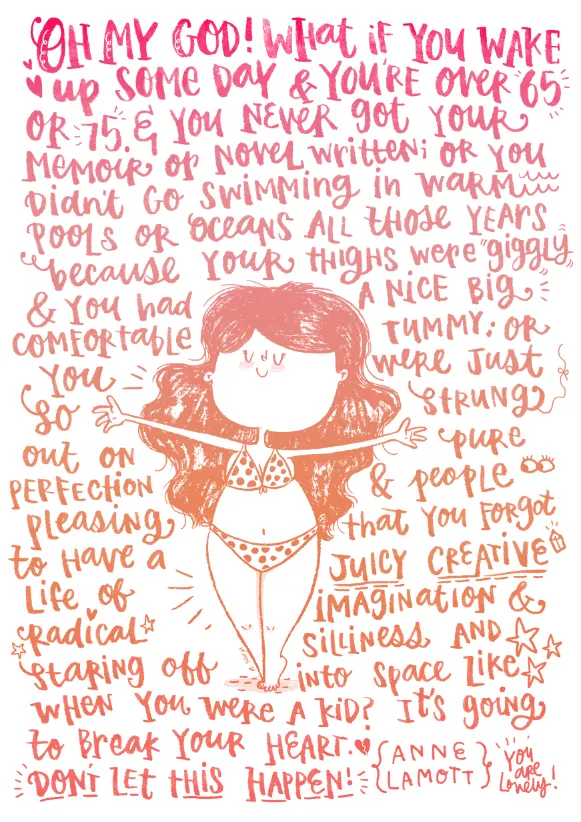 OH MY GOD! What if YOU WAKE
up SOME DAY & YOU'RE over 65
OR 75. & YOU NEVER got YOUR
MEMOIR or NOVEL written; OR YOU
Didn't GO swimming in WARM
POOLS OR OCEANS ALL those YEARS
because YOUR THIGHS were "giggly"
& YOU had A NICE BIG
COMFORTABLE TUMMY; OR
YOU were JUST
SO STRUNG
out ON pure
PERFECTION & people
pleasing that YOU FORGOT
to HAVE a JUICY CREATIVE
LIFE of IMAGINATION &
radical SILLINESS AND
STARING off into SPACE LIKE
WHEN YOU WERE A KID? It's going
to BREAK YOUR HEART.
DON'T LET THIS HAPPEN! {ANNE LAMOTT}
You are Lovely!